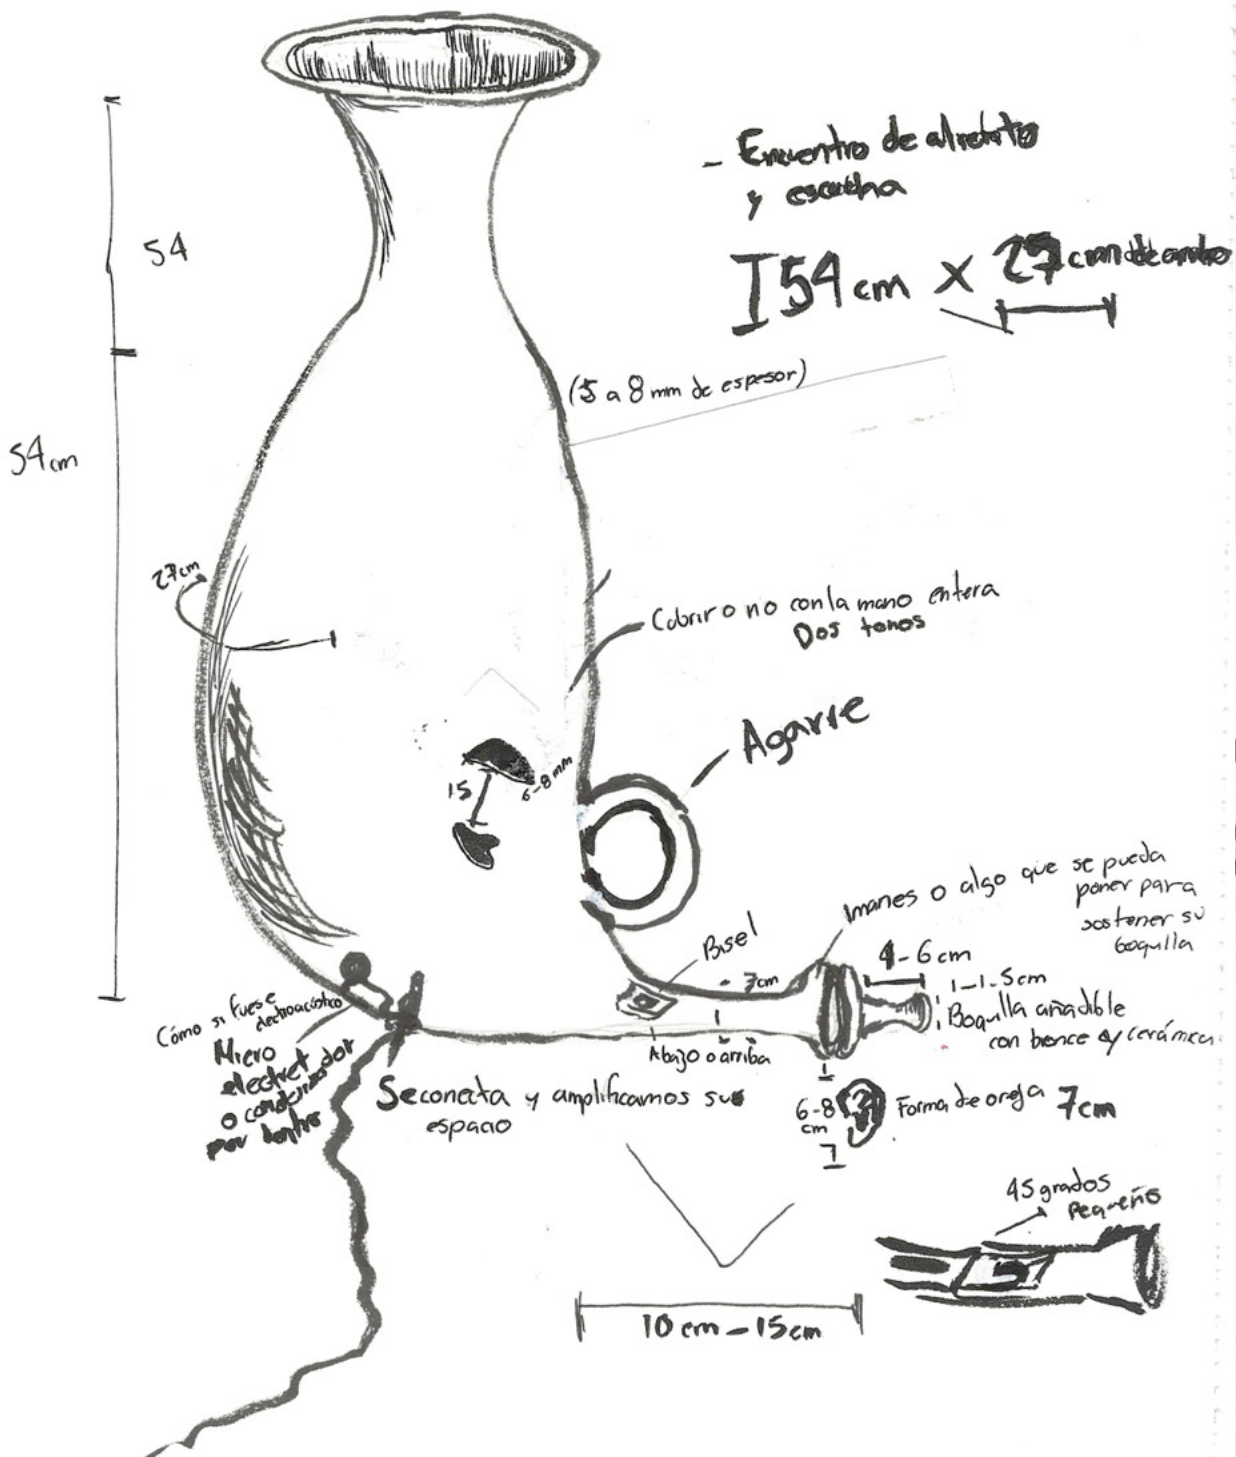 - Encuentro de
y escucha
54 cm x 27 cm de ancho
54
(5 a 8 mm de espesor)
54 cm
27cm
Cubrir o no con la mano entera
Dos tonos
Agarre
15
6-8 mm
imanes o algo que se pueda
poner para
sostener su
boquilla
Bisel
7cm
4-6 cm
1-1.5cm
Boquilla añadible
con bronce y cerámica
Cómo si fuese
electroacústico
Micro
electret
o condensador
por dentro
Abajo o arriba
Se conecta y amplificamos su
espacio
6-8
cm
Forma de oreja 7cm
45 grados
Pequeño
10 cm - 15 cm